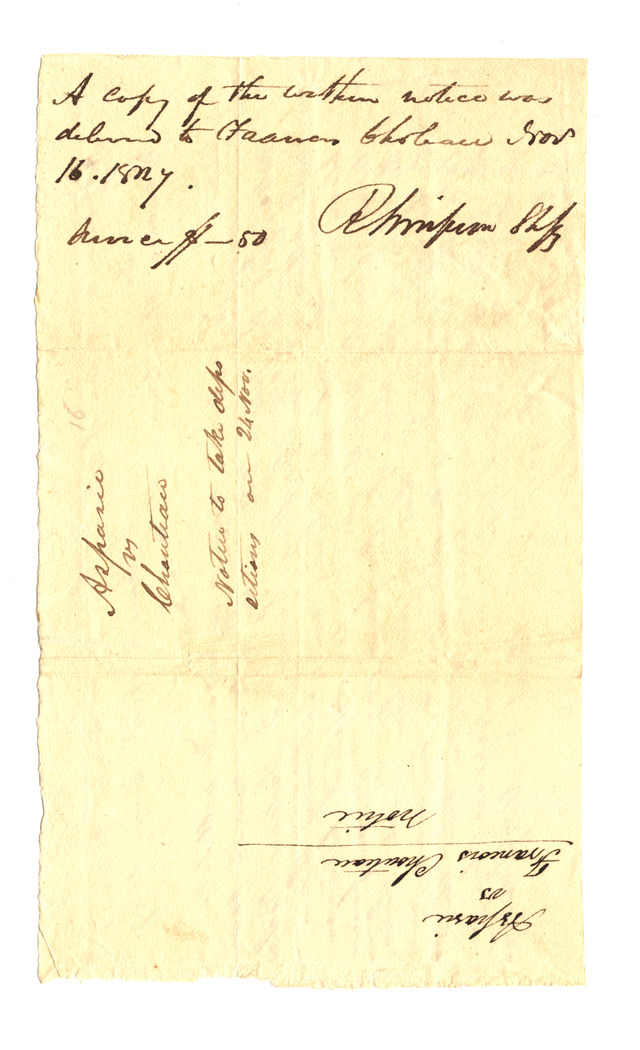 A copy of the within notice was
delivered to Francis Choteau Nov
16. 1827.
Service $ — 50
R Simpson Shff
16
Aspasie
vs
Chouteau
Notice to take depo
sitions on 24 Nov.
Aspasie
vs
Francois Chouteau
Notice